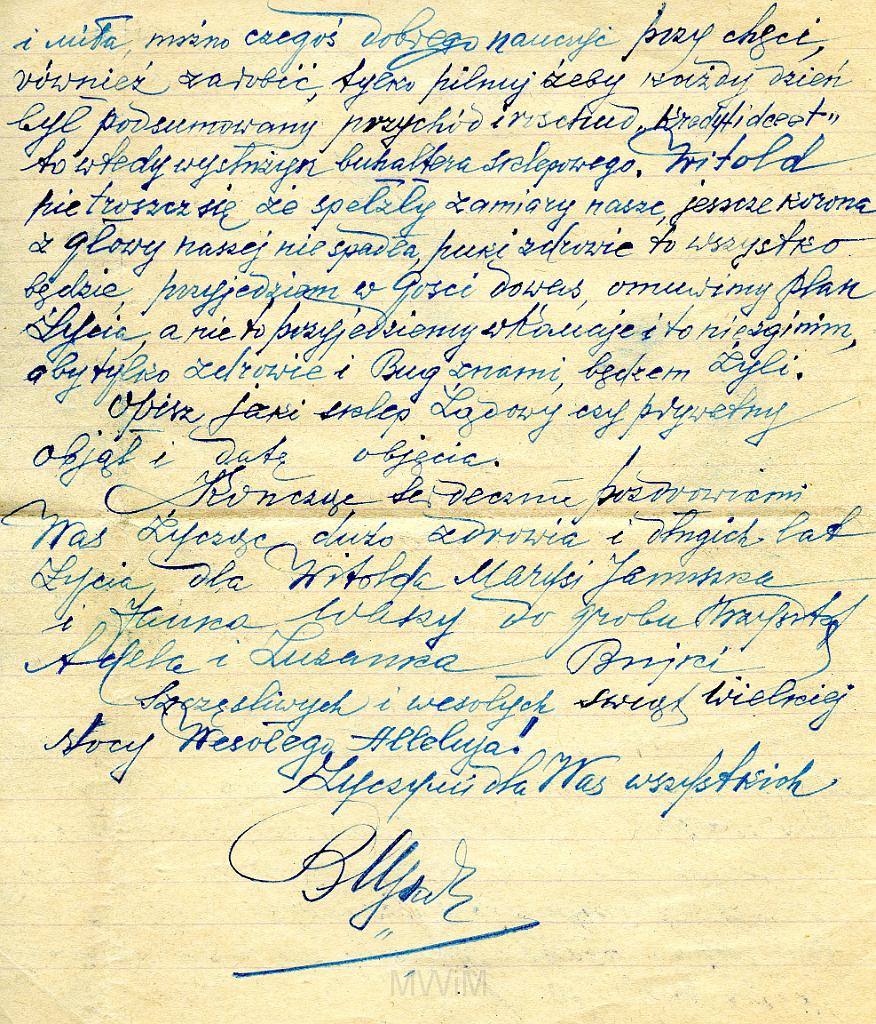 i miła, można czegoś dobrego nauczyć przy chęci,
również zarobić, tylko pilnuj żeby każdy dzień
był podsumowany przychód i roschud „kredyt i deet"
to wtedy wystrzyżyn buhaltera sklepowego. Witold
nie troszcz się że spełzły zamiary nasze, jeszcze korona
z głowy naszej nie spadła, puki zdrowie to wszystko
będzie, przyjedziem w Gości dowas, omuwimy plan
Życia, a nie to przyjedziemy w Komaje i to nie zginim,
aby tylko zdrowie i Bug znami, będzem Żyli.
Opisz jaki sklep Żądowy czy prywatny
objął i datę objęcia.
Kończąc serdecznie pozdrowiami
Was Życząc dużo zdrowia i długich lat
Życia dla Witolda Marysi Januszka
i Janka Waszy do grobu Wszystkie
Adela i Zuzanka
Szczęsliwych i wesołych swiąt Wielkiej
Nocy Wesołego Alleluja!
Życzymi dla Was wszystkich
MWiM